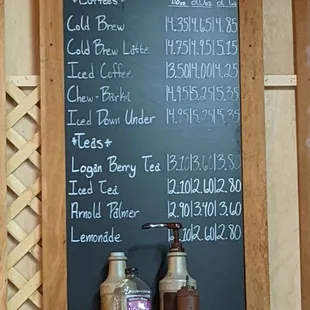 *Coffees*
Cold Brew 4.35 4.65 4.85
Cold Brew Latte 4.75 4.95 5.15
Iced Coffee 3.50 4.00 4.25
Chew-Barka 4.95 5.25 5.35
Iced Down Under 4.95 5.25 5.35
*Teas*
Logan Berry Tea 3.10 3.60 3.80
Iced Tea 2.10 2.60 2.80
Arnold Palmer 2.90 3.40 3.60
Lemonade 2.10 2.60 2.80